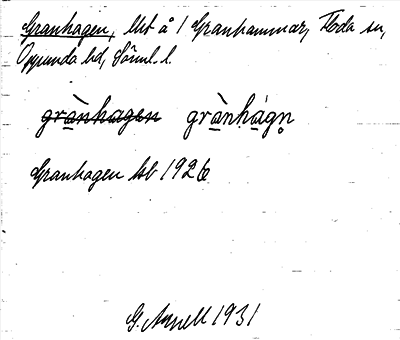 Granhagen, lht å 1 Granhammar, Floda sn,
Oppunda hd, Söml. l.
grànhagen grànhágn̥
Granhagen lsb 1926
G. Arnell 1931